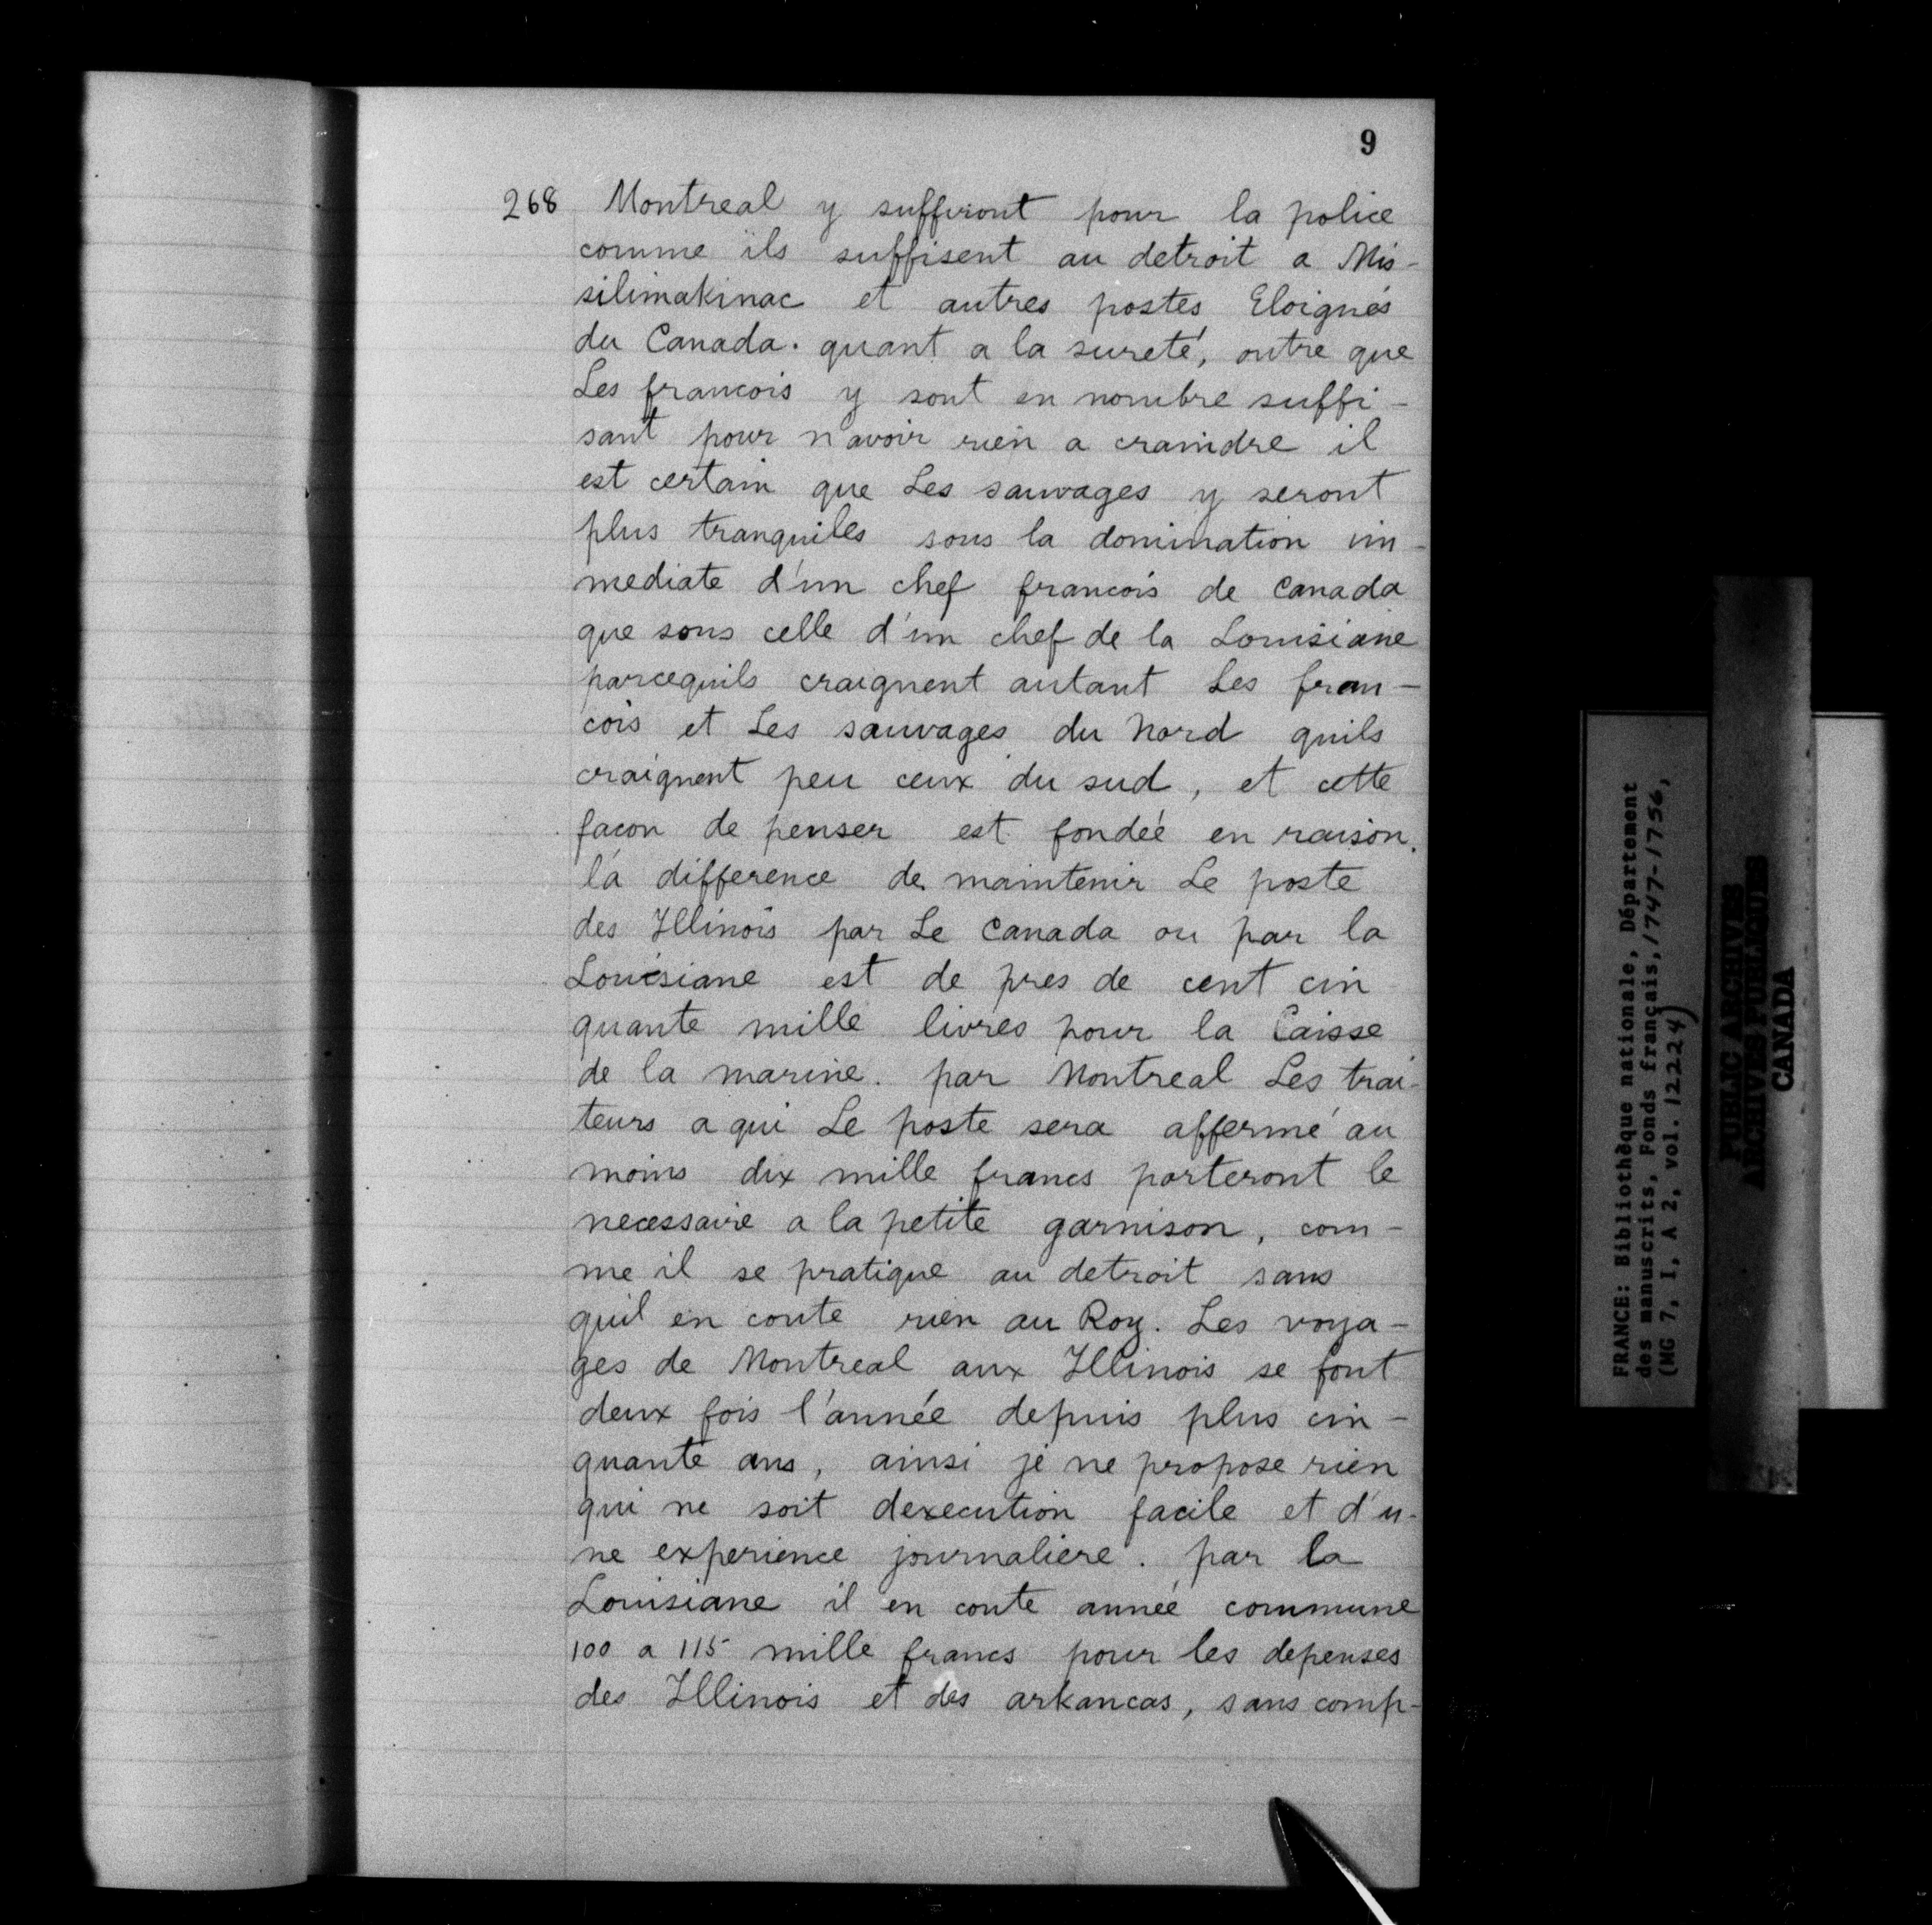 9
268 Montreal y suffiront pour la police
comme ils suffisent au detroit a Mis-
silimakinac et autres postes Eloignés
du Canada. quant a la sureté, outre que
Les francois y sont en nombre suffi-
sant pour n'avoir rien a craindre il
est certain que Les sauvages y seront
plus tranquiles sous la domination im-
mediate d'un chef francois de Canada
que sous celle d'un chef de la Louisiane
parcequils craignent autant Les fran-
cois et Les sauvages du Nord quils
craignent peu ceux du sud, et cette
façon de penser est fondée en raison.
la difference de maintenir Le poste
des Illinois par Le Canada ou par la
Louisiane est de pres de cent cin
quante mille livres pour la Caisse
de la marine. par Montreal Les trai-
teurs a qui Le poste sera affermé au
moins dix mille francs porteront le
necessaire a la petite garnison, com-
me il se pratique au detroit sans
quil en coute rien au Roy. Les voya-
ges de Montreal aux Illinois se font
deux fois l'année depuis plus cin-
quante ans, ainsi je ne propose rien
qui ne soit dexecution facile et d'u-
ne experience journaliere. par la
Louisiane il en coute année commune
100 a 115 mille francs pour les depenses
des Illinois et des arkancas, sans comp-
FRANCE: Bibliothèque nationale, Département
des manuscrits, Fonds français, 1747-1756,
(MG 7, I, A 2, vol. 12224)
PUBLIC ARCHIVES
ARCHIVES PUBLIQUES
CANADA